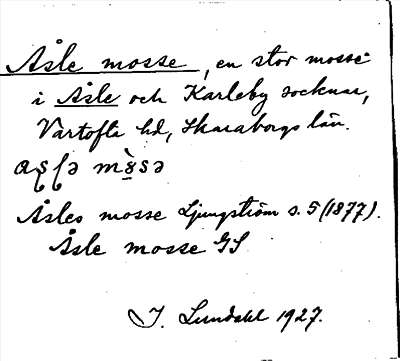 Åsle mosse, en stor mosse
i Åsle och Karleby socknar,
Vartofta hd, Skaraborgs län.
Åsles mosse Ljungström s. 5 (1877).
Åsle mosse GS
J. Lundahl 1927.